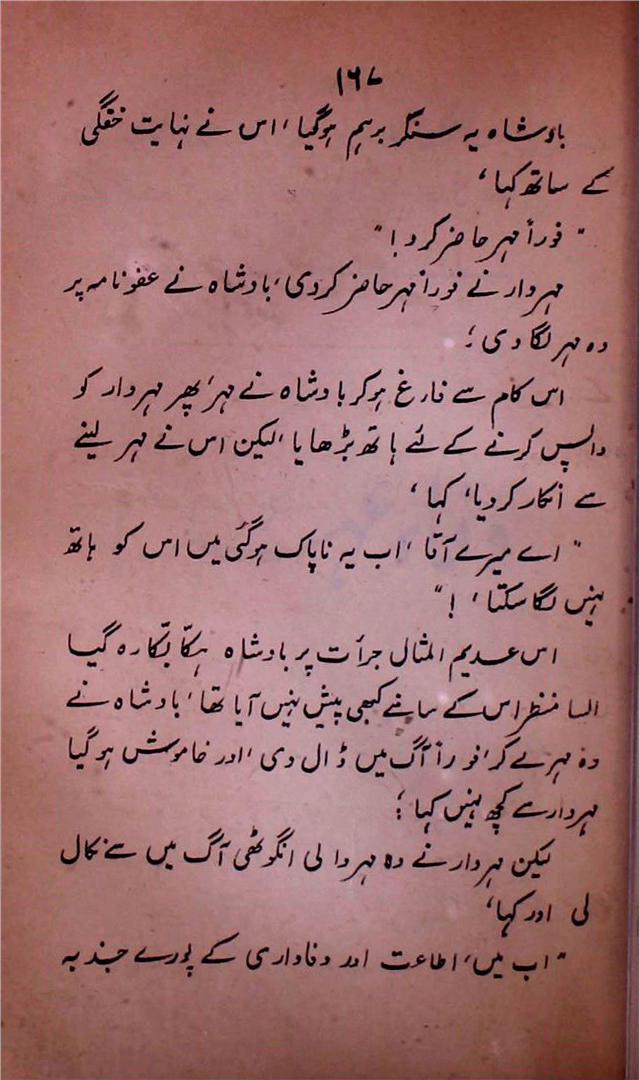 ۱۶۷
بادشاہ یہ سنکر برہم ہوگیا ، اس نے نہایت خفگی
کے ساتھ کہا ،
" فوراً مہر حاضر کرو ! "
مہردار نے فوراً مہر حاضر کردی ، بادشاہ نے عفونامہ پر
وہ مہر لگا دی ؛
اس کام سے فارغ ہوکر بادشاہ نے مہر ، پھر مہردار کو
واپس کرنے کے لئے ہاتھ بڑھایا ، لیکن اس نے مہر لینے
سے انکار کردیا ، کہا ،
" اے میرے آقا ، اب یہ ناپاک ہوگئی میں اس کو ہاتھ
نہیں لگا سکتا ، ! "
اس عدیم المثال جرأت پر بادشاہ ہکّا بکّا رہ گیا
ایسا منظر اس کے سامنے کبھی پیش نہیں آیا تھا ، بادشاہ نے
وہ مہر لے کر ، فوراً آگ میں ڈال دی ، اور خاموش ہوگیا
مہردار سے کچھ نہیں کہا ؛
لیکن مہردار نے وہ مہر والی انگوٹھی آگ میں سے نکال
لی اور کہا ،
" اب میں ، اطاعت اور وفاداری کے پورے جذبہ